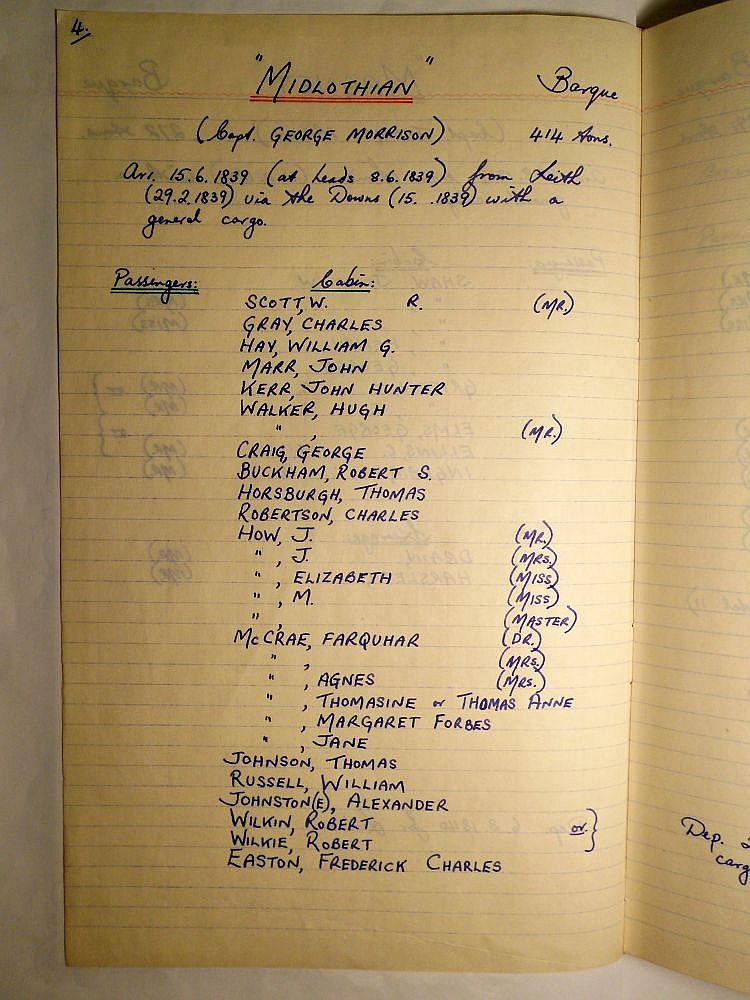 4.
"MIDLOTHIAN" Barque
(Capt. GEORGE MORRISON) 414 tons.
Arr. 15.6.1839 (at heads 8.6.1839) from Leith
(29.2.1839) via the Downs (15. .1839) with a
general cargo.
Passengers: Cabin:
SCOTT, W. R. (MR.)
GRAY, CHARLES
HAY, WILLIAM G.
MARR, JOHN
KERR, JOHN HUNTER
WALKER, HUGH
" , (MR.)
CRAIG, GEORGE
BUCKHAM, ROBERT S.
HORSBURGH, THOMAS
ROBERTSON, CHARLES
HOW, J. (MR.)
" , J. (MRS.)
" , ELIZABETH (MISS)
" , M. (MISS)
" , (MASTER)
McCRAE, FARQUHAR (DR.)
" , (MRS.)
" , AGNES (MRS.)
" , THOMASINE or THOMAS ANNE
" , MARGARET FORBES
" , JANE
JOHNSON, THOMAS
RUSSELL, WILLIAM
JOHNSTON(E), ALEXANDER
WILKIN, ROBERT or. }
WILKIE, ROBERT
EASTON, FREDERICK CHARLES
Dep.